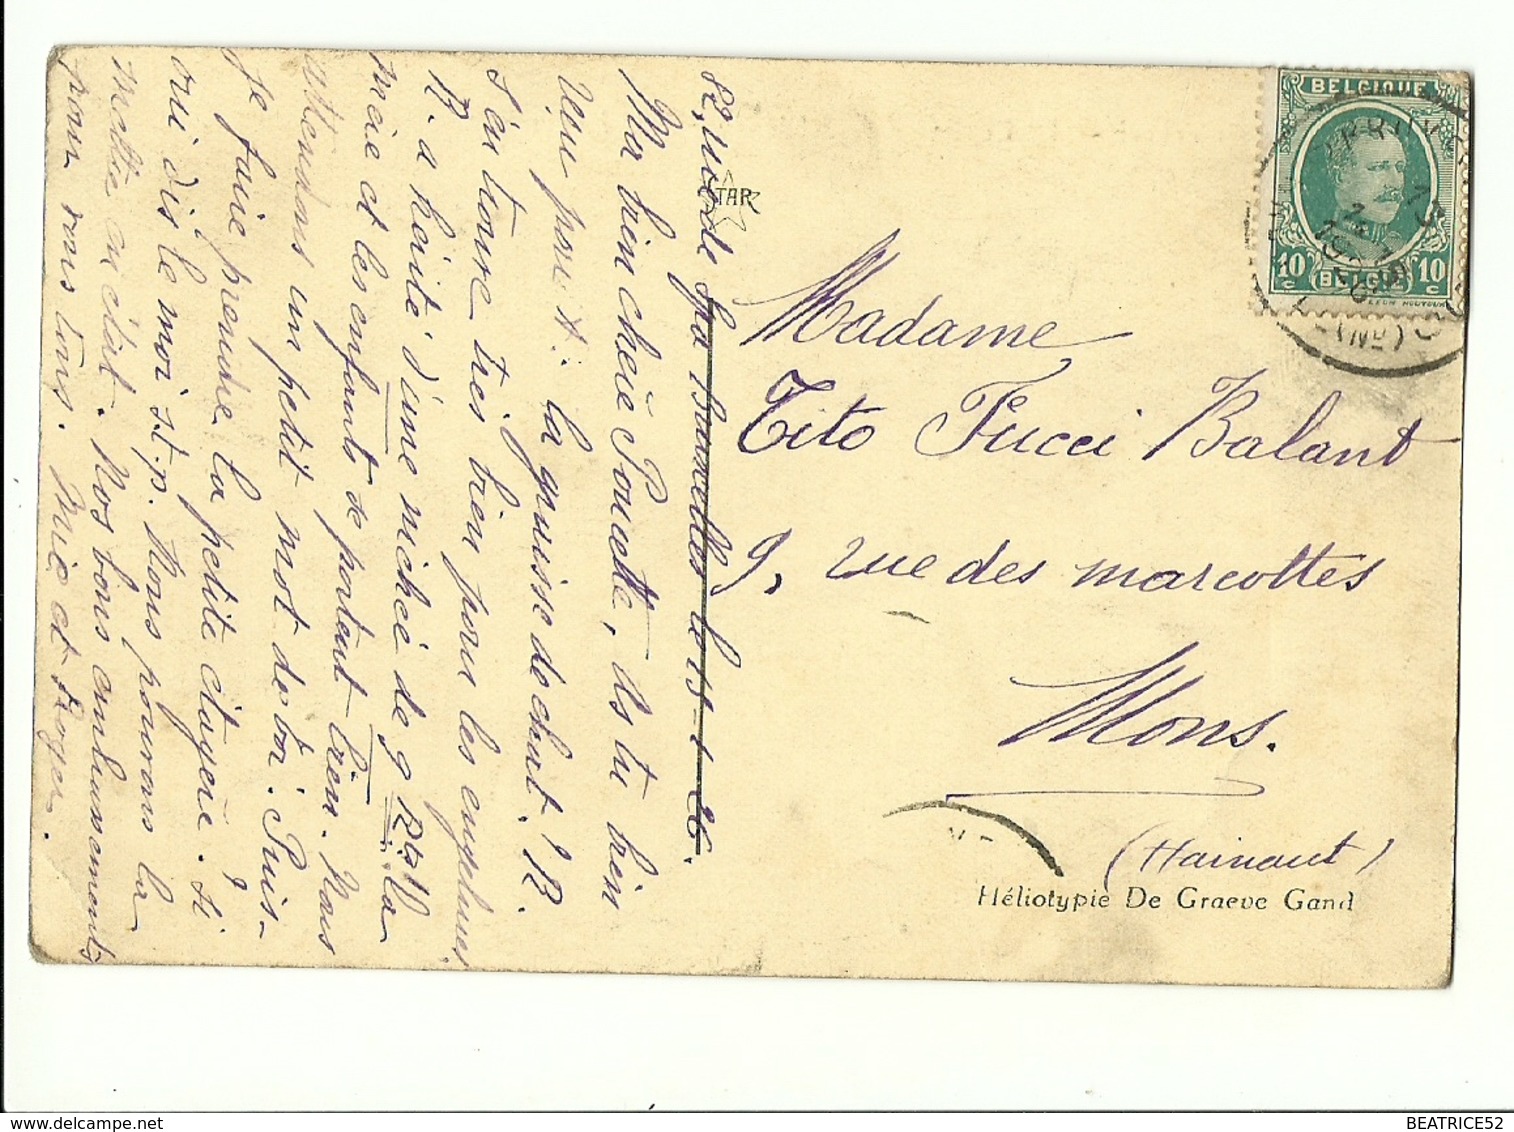 82, rue de Spa Bruxelles le 15-1-26.
Ma bien chère Poucette, As tu bien
reçu pour t. la guisse de chut. ! R.
s'en trouve très bien pour les engelures
R. a hérité d'une nichée de 9 La
mère et les enfants se portent bien. Nous
attendons un petit mot de toi. Puis-
je faire prendre ta petite étagère ? si
oui dis le moi s.t.p. Nous pourrons la
mettre en état. Nos bons embrassements
pour vous tous. Mie et Roger.
STAR
BELGIQUE
10 10
BELGIE
Madame
Tito Fucci Balant
9, rue des marcottes
Mons.
(Hainaut)
Héliotypie De Graeve Gand
BEATRICE52